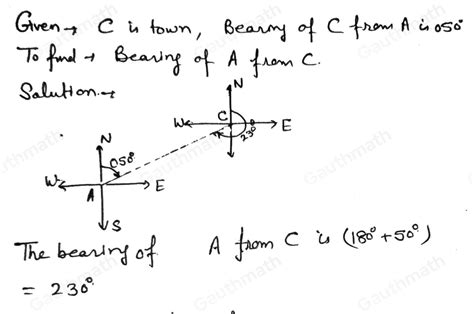 Given → C is town, Bearing of C from A is 050°
To find → Bearing of A from C.
Solution →
N
W C E
230°
N
050°
W A E
S
The bearing of A from C is (180° + 50°)
= 230°.
Gauthmath